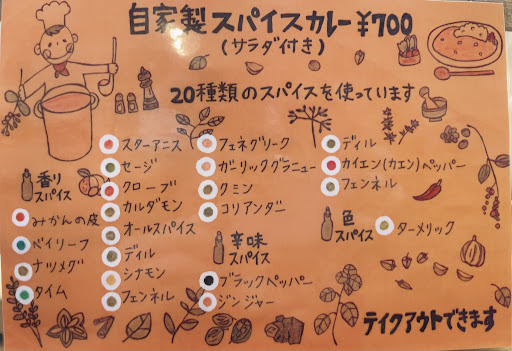 自家製スパイスカレー ¥700
(サラダ付き)
20種類のスパイスを使っています
香り
スパイス
みかんの皮
ベイリーフ
ナツメグ
タイム
スターアニス
セージ
クローブ
カルダモン
オールスパイス
ディル
シナモン
フェンネル
フェネグリーク
ガーリックグラニュー
クミン
コリアンダー
辛味
スパイス
ブラックペッパー
ジンジャー
ディル
カイエン(カエン)ペッパー
フェンネル
色
スパイス
ターメリック
テイクアウトできます